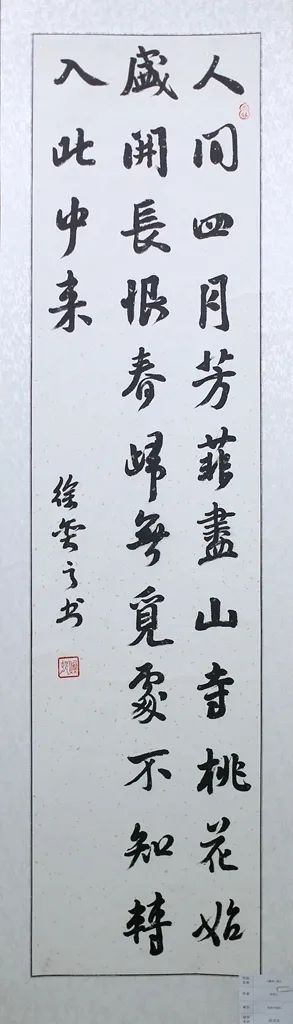 人间四月芳菲盡山寺桃花始
盛開長恨春歸無覓處不知轉
入此中来
徐奕之书